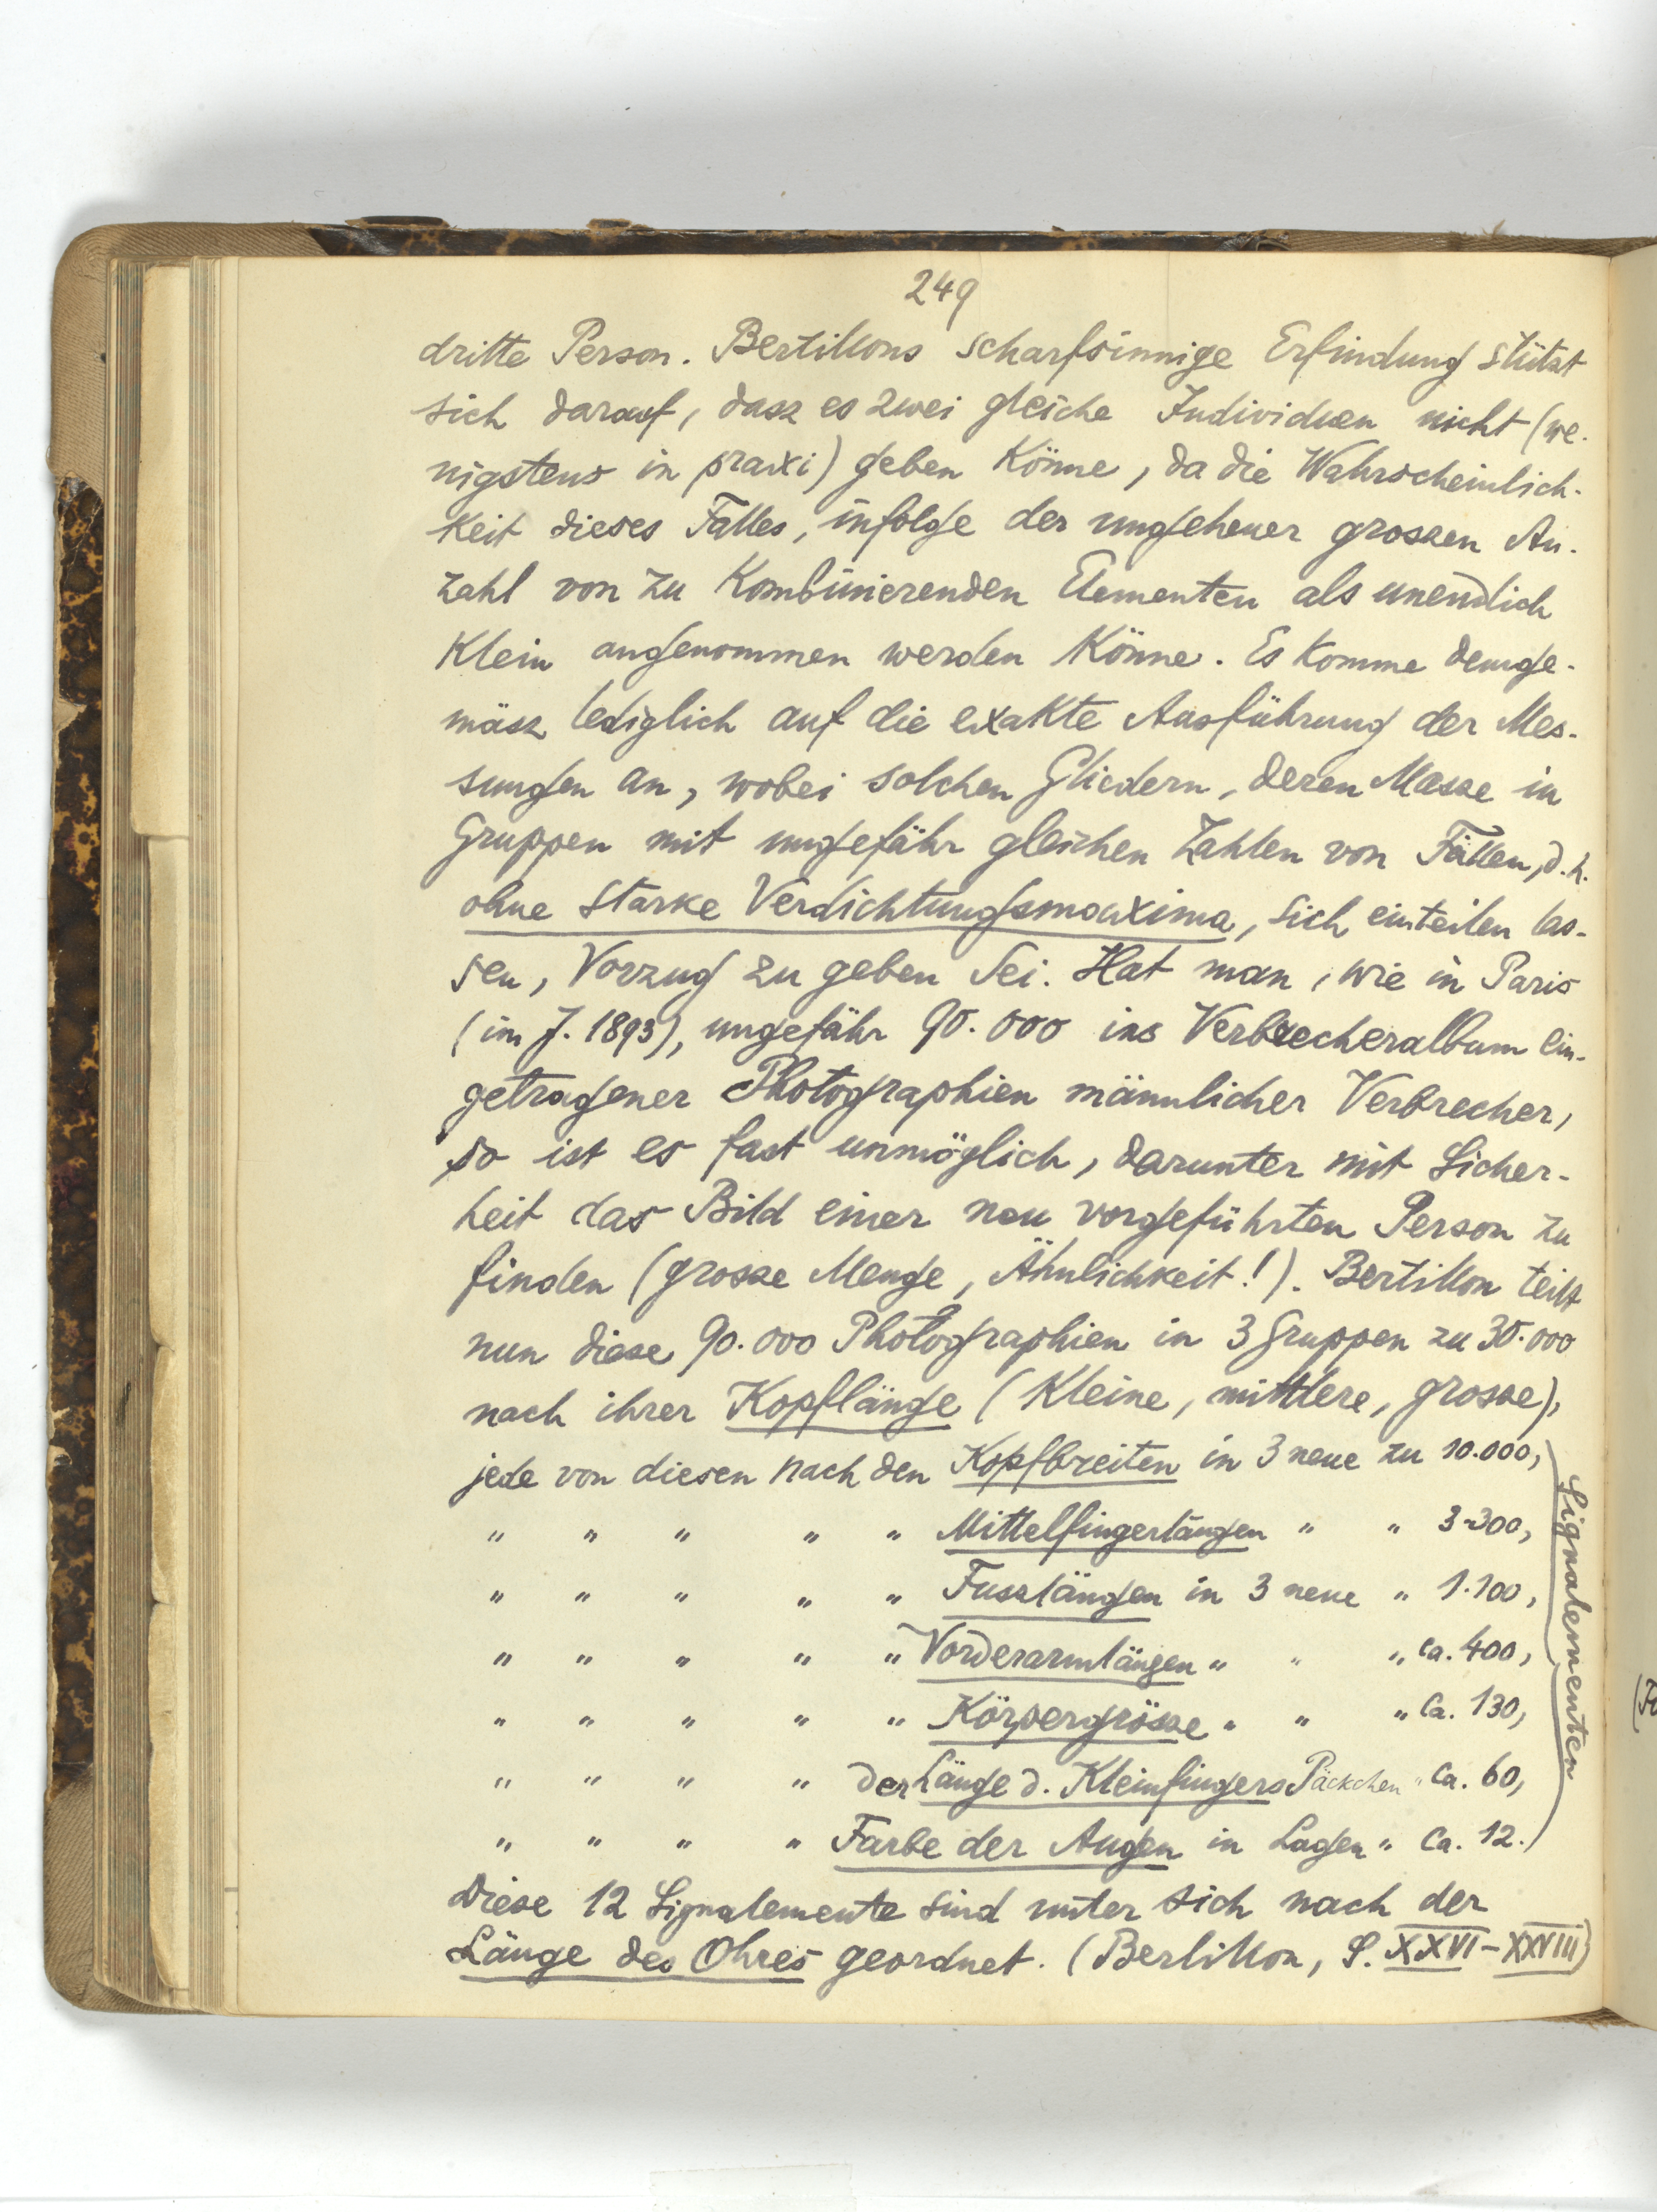 249
dritte Person. Bertillons scharfsinnige Erfindung stützt
sich darauf, dasz es zwei gleiche Individuen nicht (we-
nigstens in praxi) geben Könne, da die Wahrscheinlich-
keit dieses Falles, infolge der ungeheuer grossen An-
zahl von zu Kombinierenden Elementen als unendlich
Klein angenommen werden Könne. Es Komme demge-
mäsz lediglich auf die exakte Ausführung der Mes-
sungen an, wobei solchen Gliedern, deren Masse in
Gruppen mit ungefähr gleichen Zahlen von Fällen, d. h.
ohne starke Verdichtungsmaxima, sich einteilen las-
sen, Vorzug zu geben sei. Hat man, wie in Paris
(im J. 1893), ungefähr 90.000 ins Verbrecheralbum ein-
getragener Photographien männlicher Verbrecher,
so ist es fast unmöglich, darunter mit Sicher-
heit das Bild einer neu vorgeführten Person zu
finden (grosse Menge, Ähnlichkeit!). Bertillon teilt
nun diese 90.000 Photographien in 3 Gruppen zu 30.000
nach ihrer Kopflänge (Kleine, mittlere, grosse),
jede von diesen nach den Kopfbreiten in 3 neue zu 10.000,
" " " " " Mittelfingerlängen " " 3.300,
" " " " " Fuszlängen in 3 neue " 1.100,
" " " " " Vorderarmlängen " " " ca. 400,
" " " " " Körpergrösse " " " ca. 130,
" " " " der Länge d. Kleinfingers Päckchen " ca. 60,
" " " " Farbe der Augen in Lagen " ca. 12.
Signalementen
Diese 12 Signalemente sind unter sich nach der
Länge des Ohres geordnet. (Bertillon, S. XXVI-XXVIII)